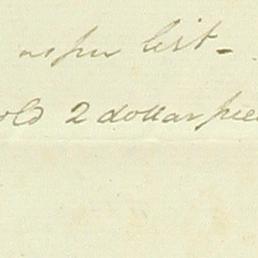 as per list -
old 2 dollar piec